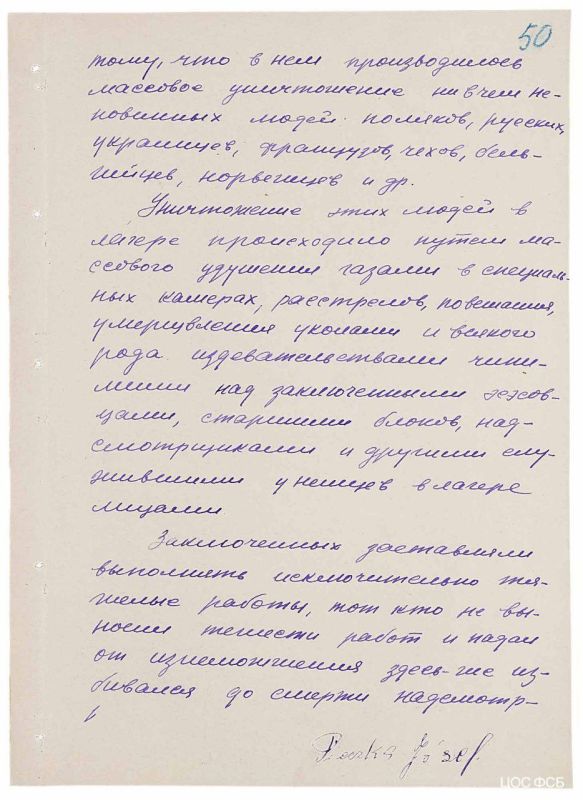 50
тому, что в нем производилось
массовое уничтожение ни в чем не-
повинных людей поляков, русских,
украинцев, французов, чехов, бель-
гийцев, норвежцев и др.
Уничтожение этих людей в
лагере происходило путем ма-
ссового удушения газами в специаль-
ных камерах, расстрелов, повешания,
умерщвления уколами и всякого
рода издевательствами чини-
мыми над заключенными эсэсов-
цами, старшими блоков, над-
смотрщиками и другими слу-
жившими у немцев в лагере
лицами.
Заключенных заставляли
выполнять исключительно тя-
желые работы, тот кто не вы-
носил тяжести работ и падал
от изнеможжения здесь-же из-
бивался до смерти надсмотр-
József.
ЦОС ФСБ